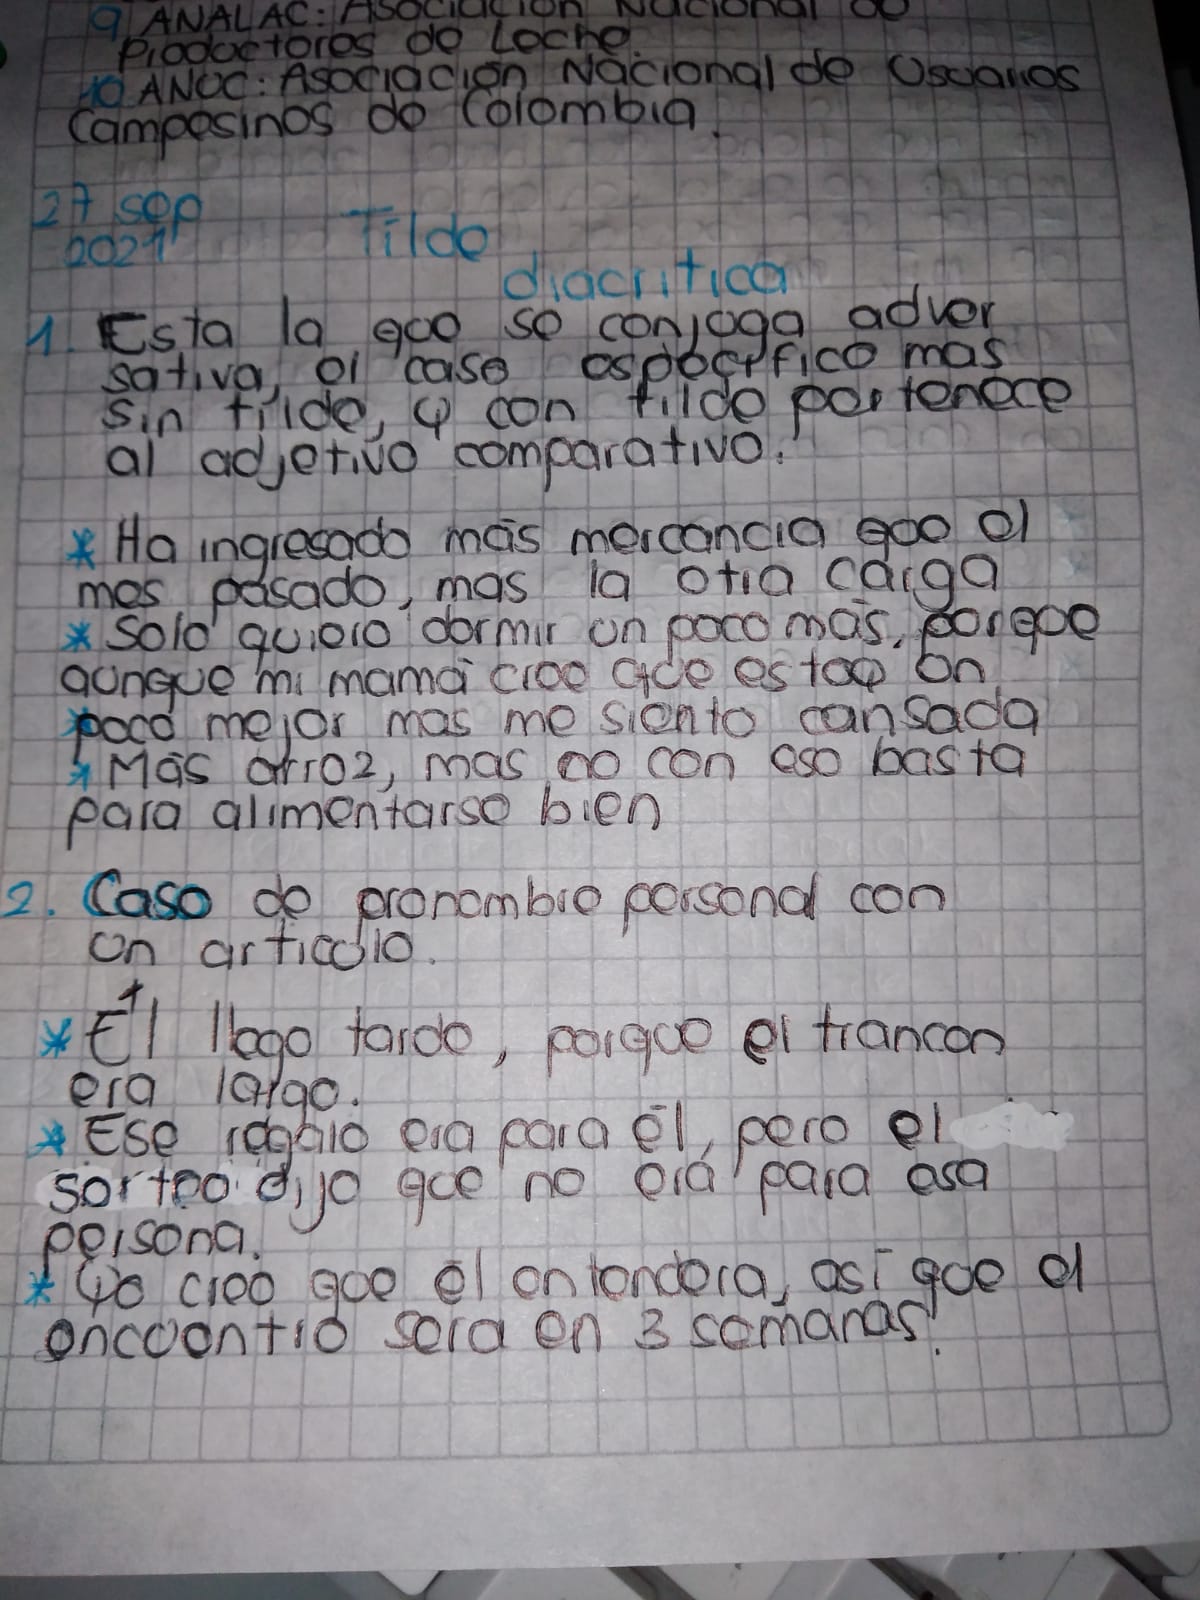 9 ANALAC: Asociación Nacional de
Productores de Leche.
10 ANUC: Asociación Nacional de Usuarios
Campesinos de Colombia.
27 sep
2021
Tilde
diacritica
1. Esta la que se conjuga adver
sativa, el caso especifico mas
sin tilde, y con tilde pertenece
al adjetivo comparativo.
* Ha ingresado más mercancia que el
mes pasado, mas la otra carga
* Solo quiero dormir un poco más, porque
aunque mi mamá cree que estoy un
poco mejor mas me siento cansada
* Más arroz, mas no con eso basta
para alimentarse bien
2. Caso de pronombre personal con
un articulo.
* Él llego tarde, porque el trancon
era largo.
* Ese regalo era para él, pero el
sorteo dijo que no era para esa
persona.
* Yo creo que él entendera, así que el
encuentro sera en 3 semanas.